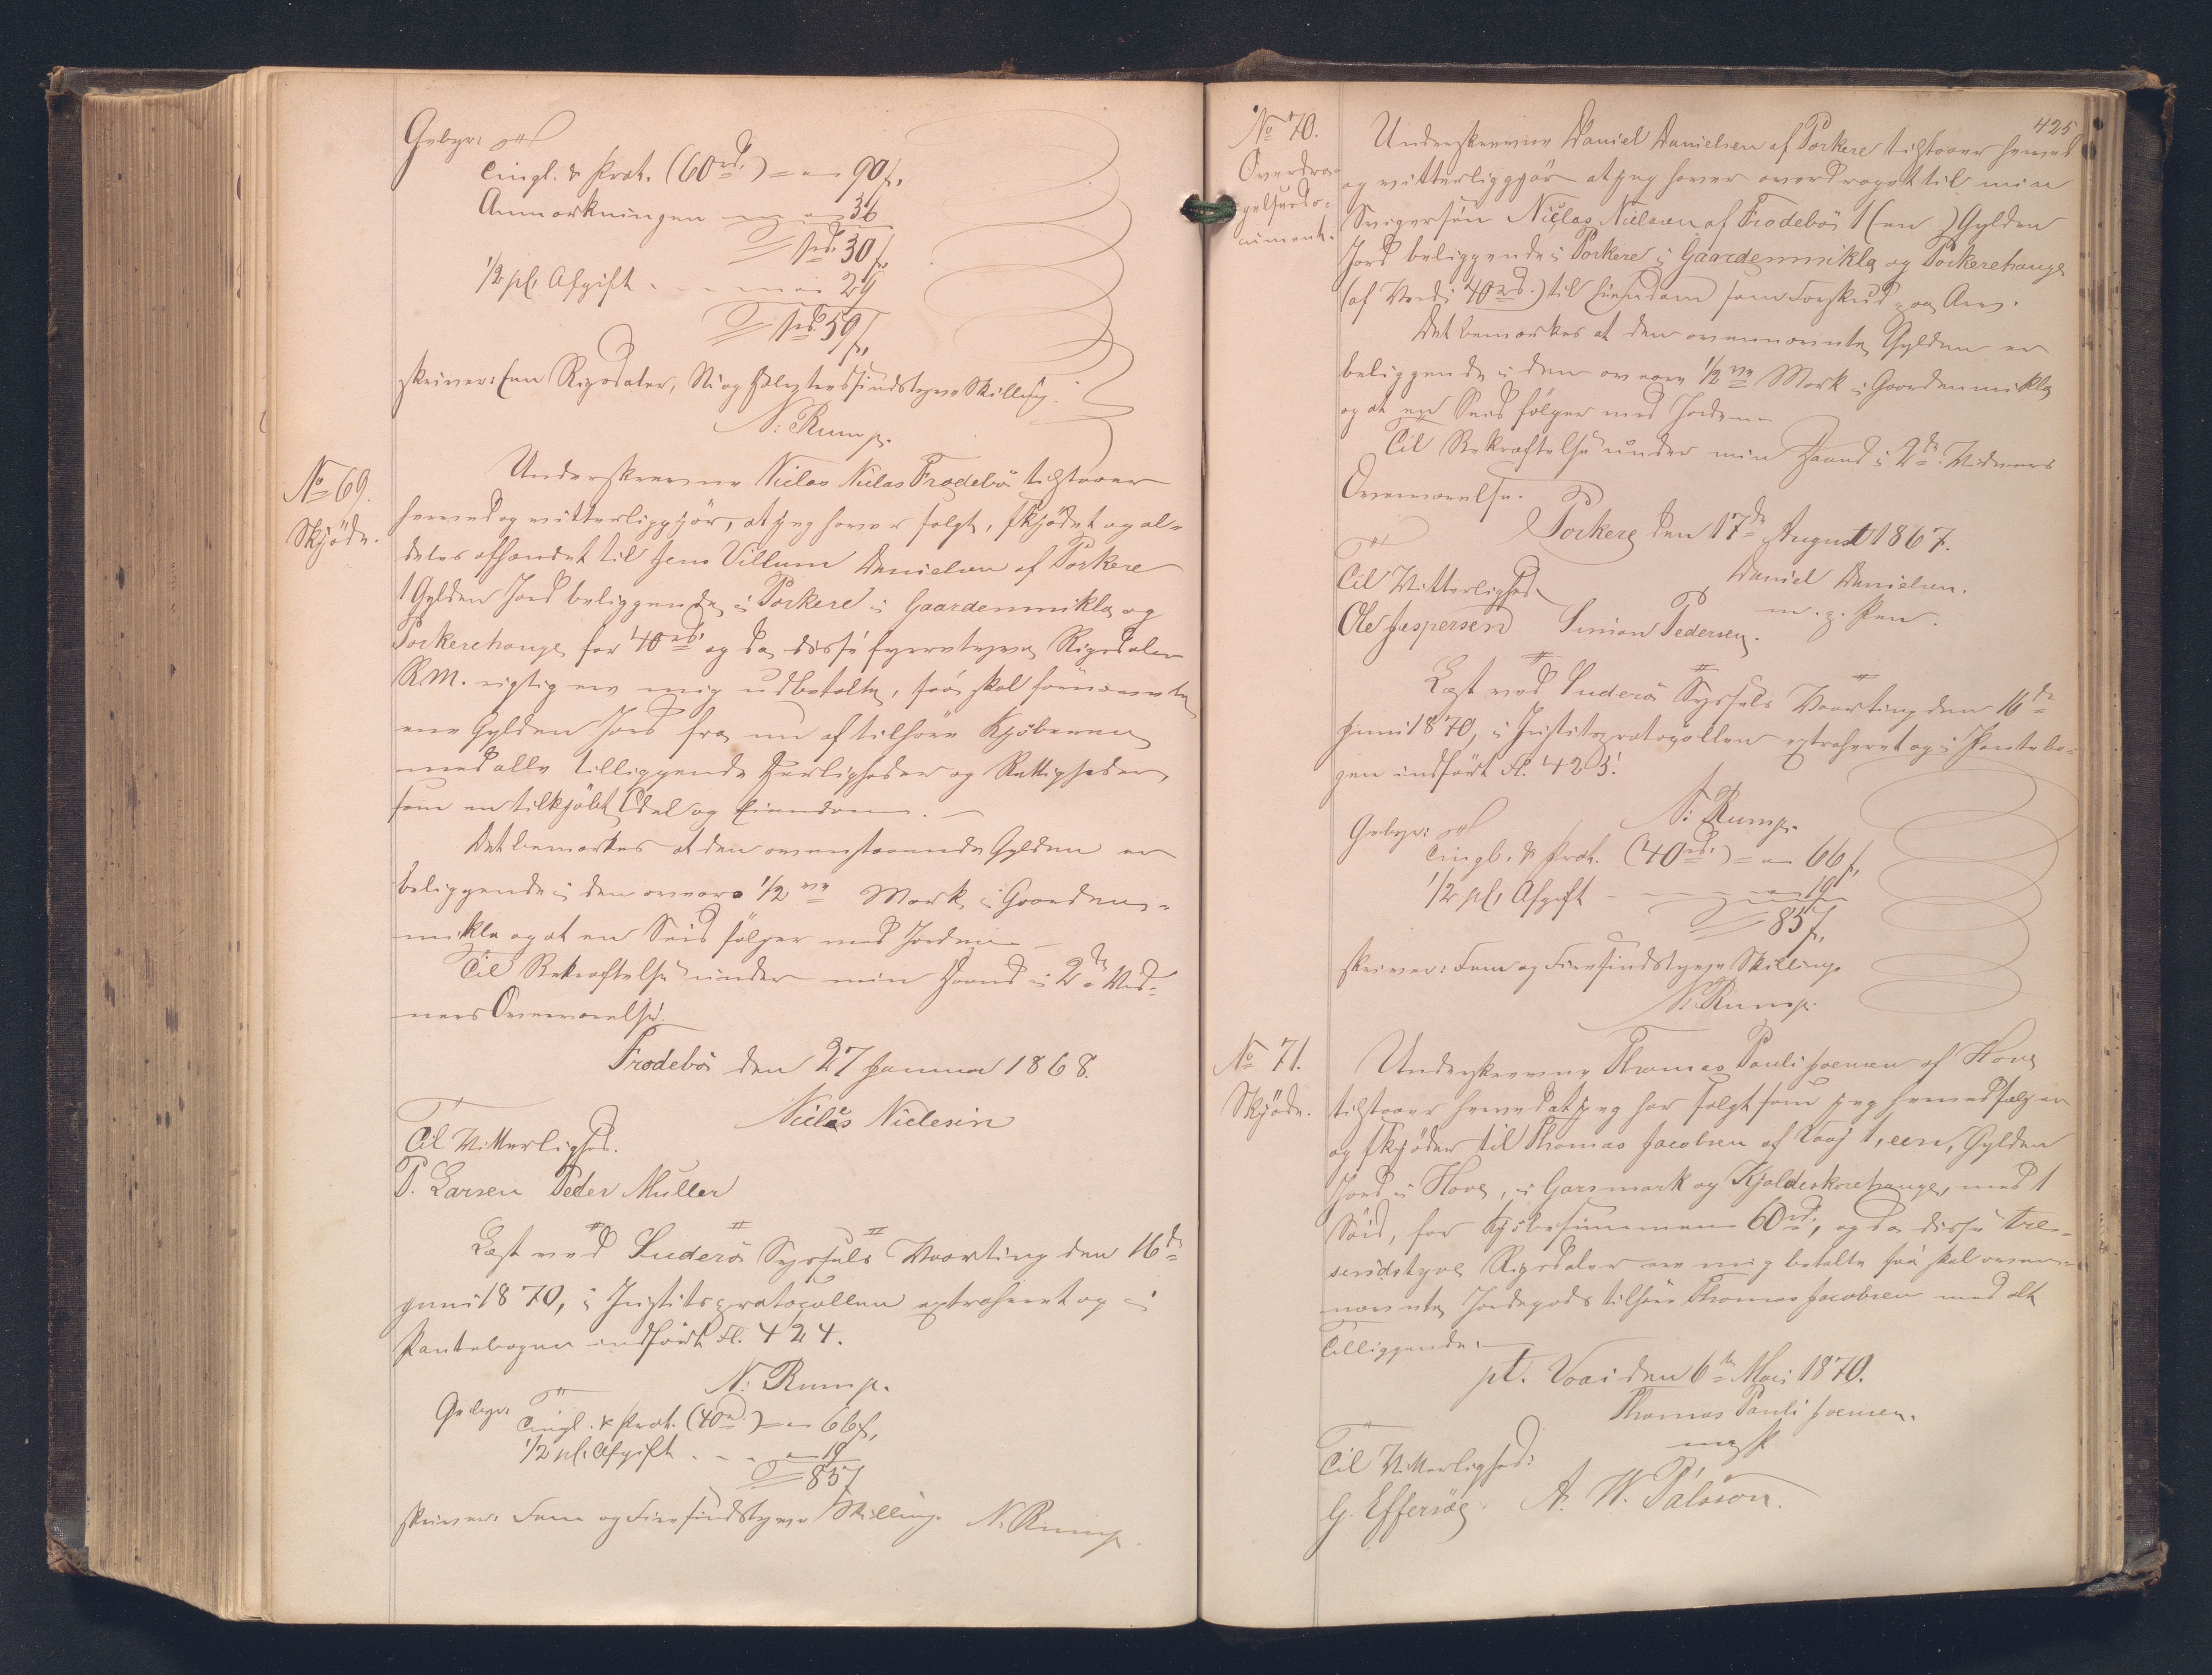 Gebyr:
Tingl. & Prot. (60 rd.) = „ 90 s.
Anmærkningen „ 36
1 rd. 30 s.
1/2 pCt. Afgift . - - „ 29
1 rd. 59 s.
skriver: Een Rigsdaler, Ni og Halvtredsindstyve Skilling.
N. Rump.
No 69.
Skjöde.
Underskrevne Niclas Niclas Frodebö tilstaaer
herved og vitterliggjör, at jeg haver solgt, skjödet og al-
deles afhændet til Jens Villum Danielsen af Porkere
1 Gylden Jord beliggende i Porkere i Gaardenmikla og
Porkerehauge for 40 rd. og da disse fyrretyve Rigsdaler
R.M. rigtig ere mig udbetalte, saa skal fornævnte
ene Gylden Jord fra nu af tilhöre Kjöberen
med alle tilliggende Herligheder og Rettigheder,
som en tilkjöbt Odel og Eiendom. -
Det bemærkes at den ovenstaaende Gylden er
beliggende i den övere 1/2 ve Mark i Gaarden-
mikla og at en Seid fölger med Jorden -
Til Bekræftelse under min Haand i 2de Vid-
ners Overværelse.
Frodebö den 27 Januar 1868.
Niclås Niclesin
Til Vitterlighed.
P. Larsen Peder Müller
Læst ved Suderö Syssels Vaarting den 16de
Juni 1870, i Justitsprotocollen extraheret og i
Pantebogen indfört Fl. 424.
N. Rump.
Gebyr:
Tingl. & Prot. (40 rd.) = „ 66 s.
1/2 pCt. Afgift . - - „ 19
85 s.
skriver: Fem og Firesindstyve Skilling. N. Rump
425
No 70.
Overdra-
gelsesdo-
cument.
Underskrevne Daniel Danielsen af Porkere tilstaaer herved
og vitterliggjör at jeg haver overdraget til min
Svigersön Niclas Nielasen af Frodebö 1 (en) Gylden
Jord beliggende i Porkere i Gaardenmikla og Porkerehauge
(af Verdi 40 rd.) til Eiendom som Forskud paa Arv.
Det bemærkes at den ovennævnte Gylden er
beliggende i den övere 1/2 ve Mark i Gaardenmikla
og at en Seid fölger med Jorden -
Til Bekræftelse under min Haand i 2de Vidners
Overværelse.
Porkere den 17de August 1867.
Daniel Danielsen.
m. p. Pen.
Til Vitterlighed
Ole Jaspersen Simon Pedersen.
Læst ved Suderö Syssels Vaarting den 16de
Juni 1870, i Justitsprotocollen extraheret og i Pantebo-
gen indfört Fl. 425.
N. Rump.
Gebyr:
Tingl. & Prot. (40 rd.) = „ 66 s.
1/2 pCt. Afgift - „ 19
85 s.
skriver: Fem og Firesindstyve Skilling.
N. Rump.
No 71.
Skjöde.
Underskrevne Thomas Pauli Joensen af Hove
tilstaaer herved at jeg har solgt som jeg herved sælger
og skjöder til Thomas Jacobsen af Vaaj 1, een, Gylden
Jord i Hove, i Garsmark og Kjaldeskorehauge, med 1
Söid, for Kjöbesummen 60 rd., og da disse tre-
sindstyve Rigsdaler ere mig betalte saa skal oven-
nævnte Jordegods tilhöre Thomas Jacobsen med alt
Tilliggende.-
pt. Vaai den 6te Mai 1870.
Thomas Pauli Joensen.
Til Vitterlighed:
G. Effersöe. A. W. Pálsson.